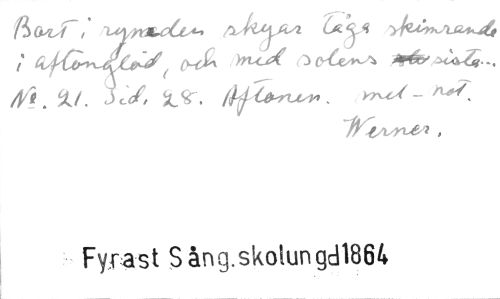 Bort i rymden skyar tåga skimrande
i aftonglöd, och med solens sista...
No. 21. Sid. 28. Aftonen. mel-not.
Werner.
Fyrast Sång.skolungd1864